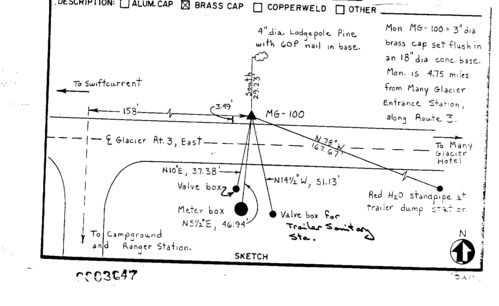 DESCRIPTION: ☐ ALUM. CAP ☒ BRASS CAP ☐ COPPERWELD ☐ OTHER
4" dia. Lodgepole Pine
with 60P nail in base.
Mon MG-100 = 3" dia
brass cap set flush in
an 18" dia conc. base.
Mon. is 4.75 miles
from Many Glacier
Entrance Station,
along Route 3.
To Swiftcurrent
South
29.23'
158'
3.49'
MG-100
℄ Glacier Rt. 3, East
N.78°W
167.67'
To Many
Glacier
Hotel
N10°E, 37.38'
N14½°W, 51.13'
Valve box
Red H2O standpipe at
trailer dump station
Meter box
N5½°E, 46.94'
Valve box for
Trailer Sanitary
Sta.
To Campground
and Ranger Station.
SKETCH
N